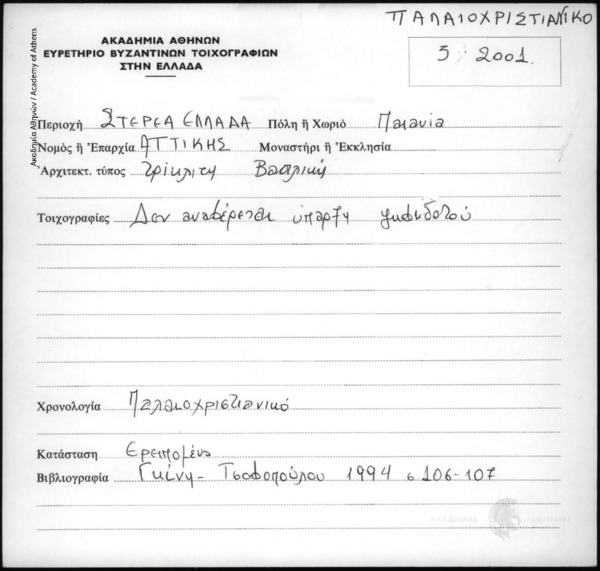 ΠΑΛΑΙΟΧΡΙΣΤΙΑΝΙΚΟ
ΑΚΑΔΗΜΙΑ ΑΘΗΝΩΝ
ΕΥΡΕΤΗΡΙΟ ΒΥΖΑΝΤΙΝΩΝ ΤΟΙΧΟΓΡΑΦΙΩΝ
ΣΤΗΝ ΕΛΛΑΔΑ
5 2001.
Ακαδημία Αθηνών / Academy of Athens
Περιοχὴ ΣΤΕΡΕΑ ΕΛΛΑΔΑ Πόλη ἢ Χωριὸ Παιανία
Νομὸς ἢ Ἐπαρχία ΑΤΤΙΚΗΣ Μοναστήρι ἢ Ἐκκλησία
Ἀρχιτεκτ. τύπος τρίκλιτη Βασιλική
Τοιχογραφίες Δεν αναφέρεται ύπαρξη ψηφιδωτού
Χρονολογία Παλαιοχριστιανικό
Κατάσταση Ερειπωμένο
Βιβλιογραφία Γκίνη-Τσοφοπούλου 1994 σ 106-107